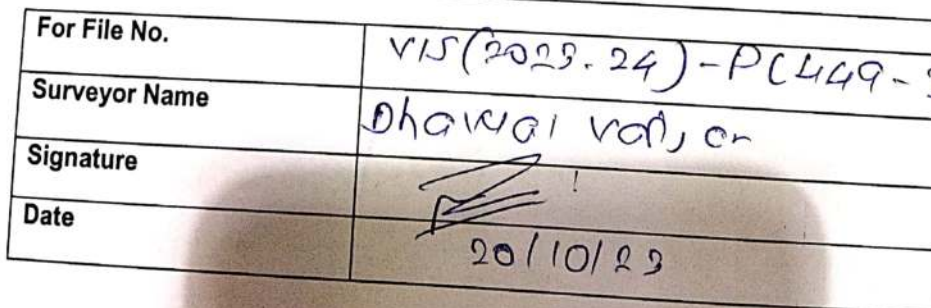 For File No. VIS(2023-24)-PC449-
Surveyor Name Dhawal
Signature
Date 20/10/23